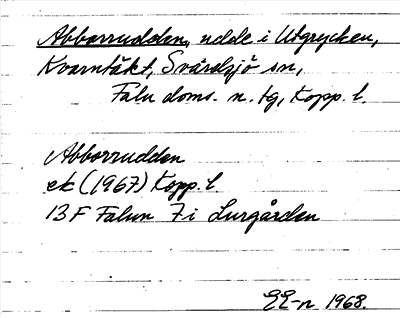 Abborrudden, udde i Utgrycken,
Kvarntäkt, Svärdsjö sn,
Falu doms. n. tg, Kopp. l.
Abborrudden
ek (1967) Kopp. l
13F Falun 7i Lurgården
EE-n 1968.